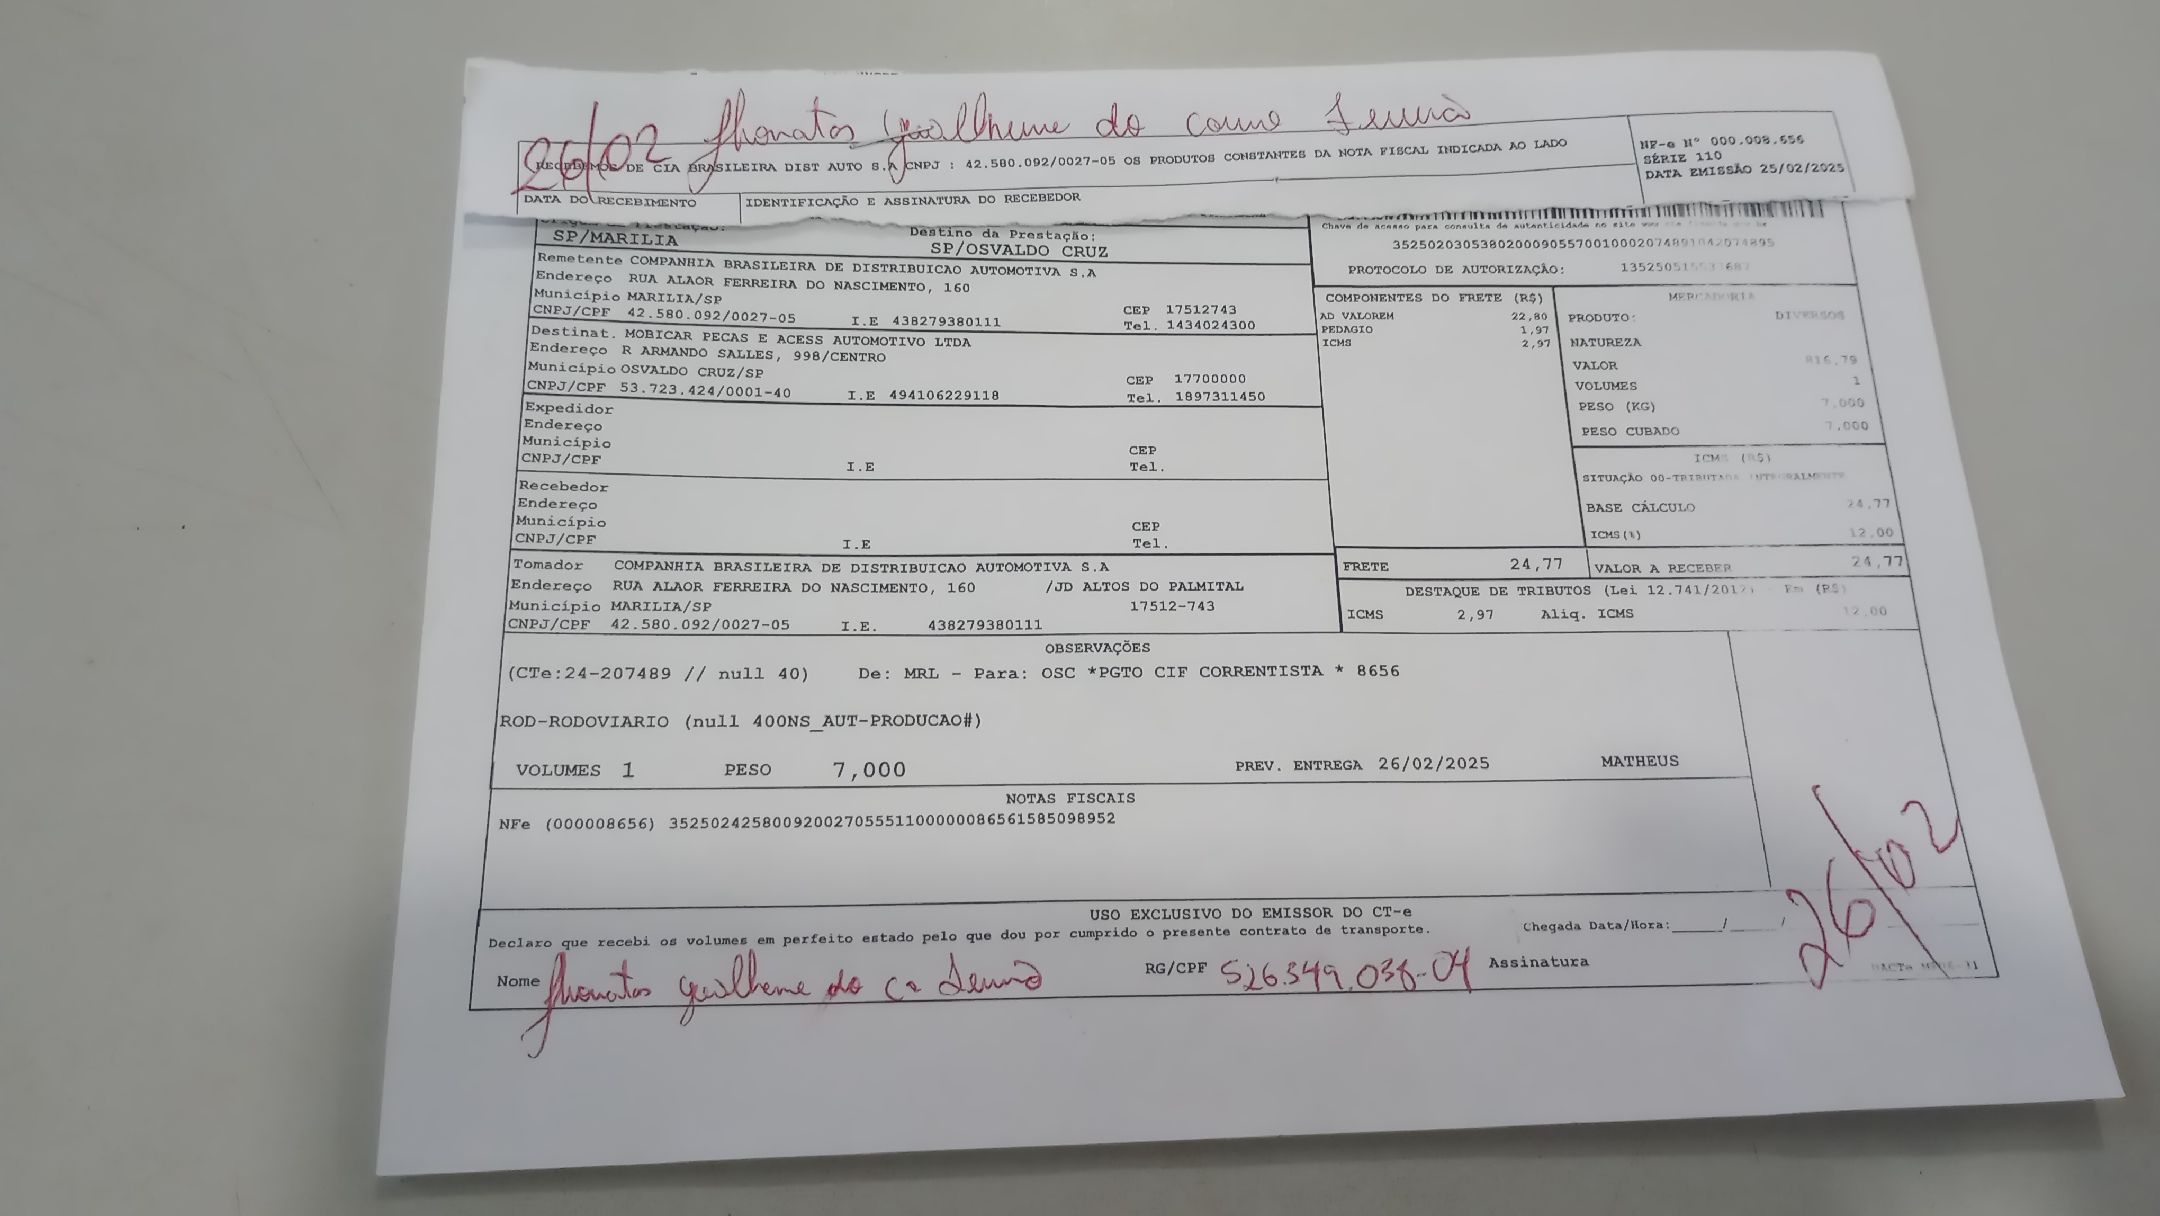 26/02 Jhonatas Guilherme do
RECEBEMOS DE CIA BRASILEIRA DIST AUTO S.A CNPJ : 42.580.092/0027-05 OS PRODUTOS CONSTANTES DA NOTA FISCAL INDICADA AO LADO
NF-e Nº 000.008.656
SÉRIE 110
DATA EMISSÃO 25/02/2025
DATA DO RECEBIMENTO IDENTIFICAÇÃO E ASSINATURA DO RECEBEDOR
SP/MARILIA
Destino da Prestação:
SP/OSVALDO CRUZ
Chave de acesso para consulta de autenticidade no site
PROTOCOLO DE AUTORIZAÇÃO:
Remetente COMPANHIA BRASILEIRA DE DISTRIBUICAO AUTOMOTIVA S.A
Endereço RUA ALAOR FERREIRA DO NASCIMENTO, 160
Município MARILIA/SP CEP 17512743
CNPJ/CPF 42.580.092/0027-05 I.E 438279380111 Tel. 1434024300
Destinat. MOBICAR PECAS E ACESS AUTOMOTIVO LTDA
Endereço R ARMANDO SALLES, 998/CENTRO
Município OSVALDO CRUZ/SP CEP 17700000
CNPJ/CPF 53.723.424/0001-40 I.E 494106229118 Tel. 1897311450
Expedidor
Endereço
Município CEP
CNPJ/CPF I.E Tel.
Recebedor
Endereço
Município CEP
CNPJ/CPF I.E Tel.
Tomador COMPANHIA BRASILEIRA DE DISTRIBUICAO AUTOMOTIVA S.A
Endereço RUA ALAOR FERREIRA DO NASCIMENTO, 160 /JD ALTOS DO PALMITAL
Município MARILIA/SP 17512-743
CNPJ/CPF 42.580.092/0027-05 I.E. 438279380111
COMPONENTES DO FRETE (R$)
AD VALOREM 22,80
PEDAGIO 1,97
ICMS 2,97
MERCADORIA
PRODUTO: DIVERSOS
NATUREZA
VALOR 816,79
VOLUMES 1
PESO (KG) 7,000
PESO CUBADO 7,000
ICMS (R$)
SITUAÇÃO 00-TRIBUTADA INTEGRALMENTE
BASE CÁLCULO 24,77
ICMS(%) 12,00
FRETE 24,77 VALOR A RECEBER 24,77
DESTAQUE DE TRIBUTOS (Lei 12.741/2012) - Em (R$)
ICMS 2,97 Aliq. ICMS 12,00
OBSERVAÇÕES
(CTe:24-207489 // null 40) De: MRL - Para: OSC *PGTO CIF CORRENTISTA * 8656
ROD-RODOVIARIO (null 400NS_AUT-PRODUCAO#)
VOLUMES 1 PESO 7,000 PREV. ENTREGA 26/02/2025 MATHEUS
NOTAS FISCAIS
NFe (000008656) 35250242580092002705551100000086561585098952
USO EXCLUSIVO DO EMISSOR DO CT-e
Declaro que recebi os volumes em perfeito estado pelo que dou por cumprido o presente contrato de transporte.
Chegada Data/Hora:_____/_____/
26/02
Nome Jhonatas Guilherme do RG/CPF 526.549.038-04 Assinatura